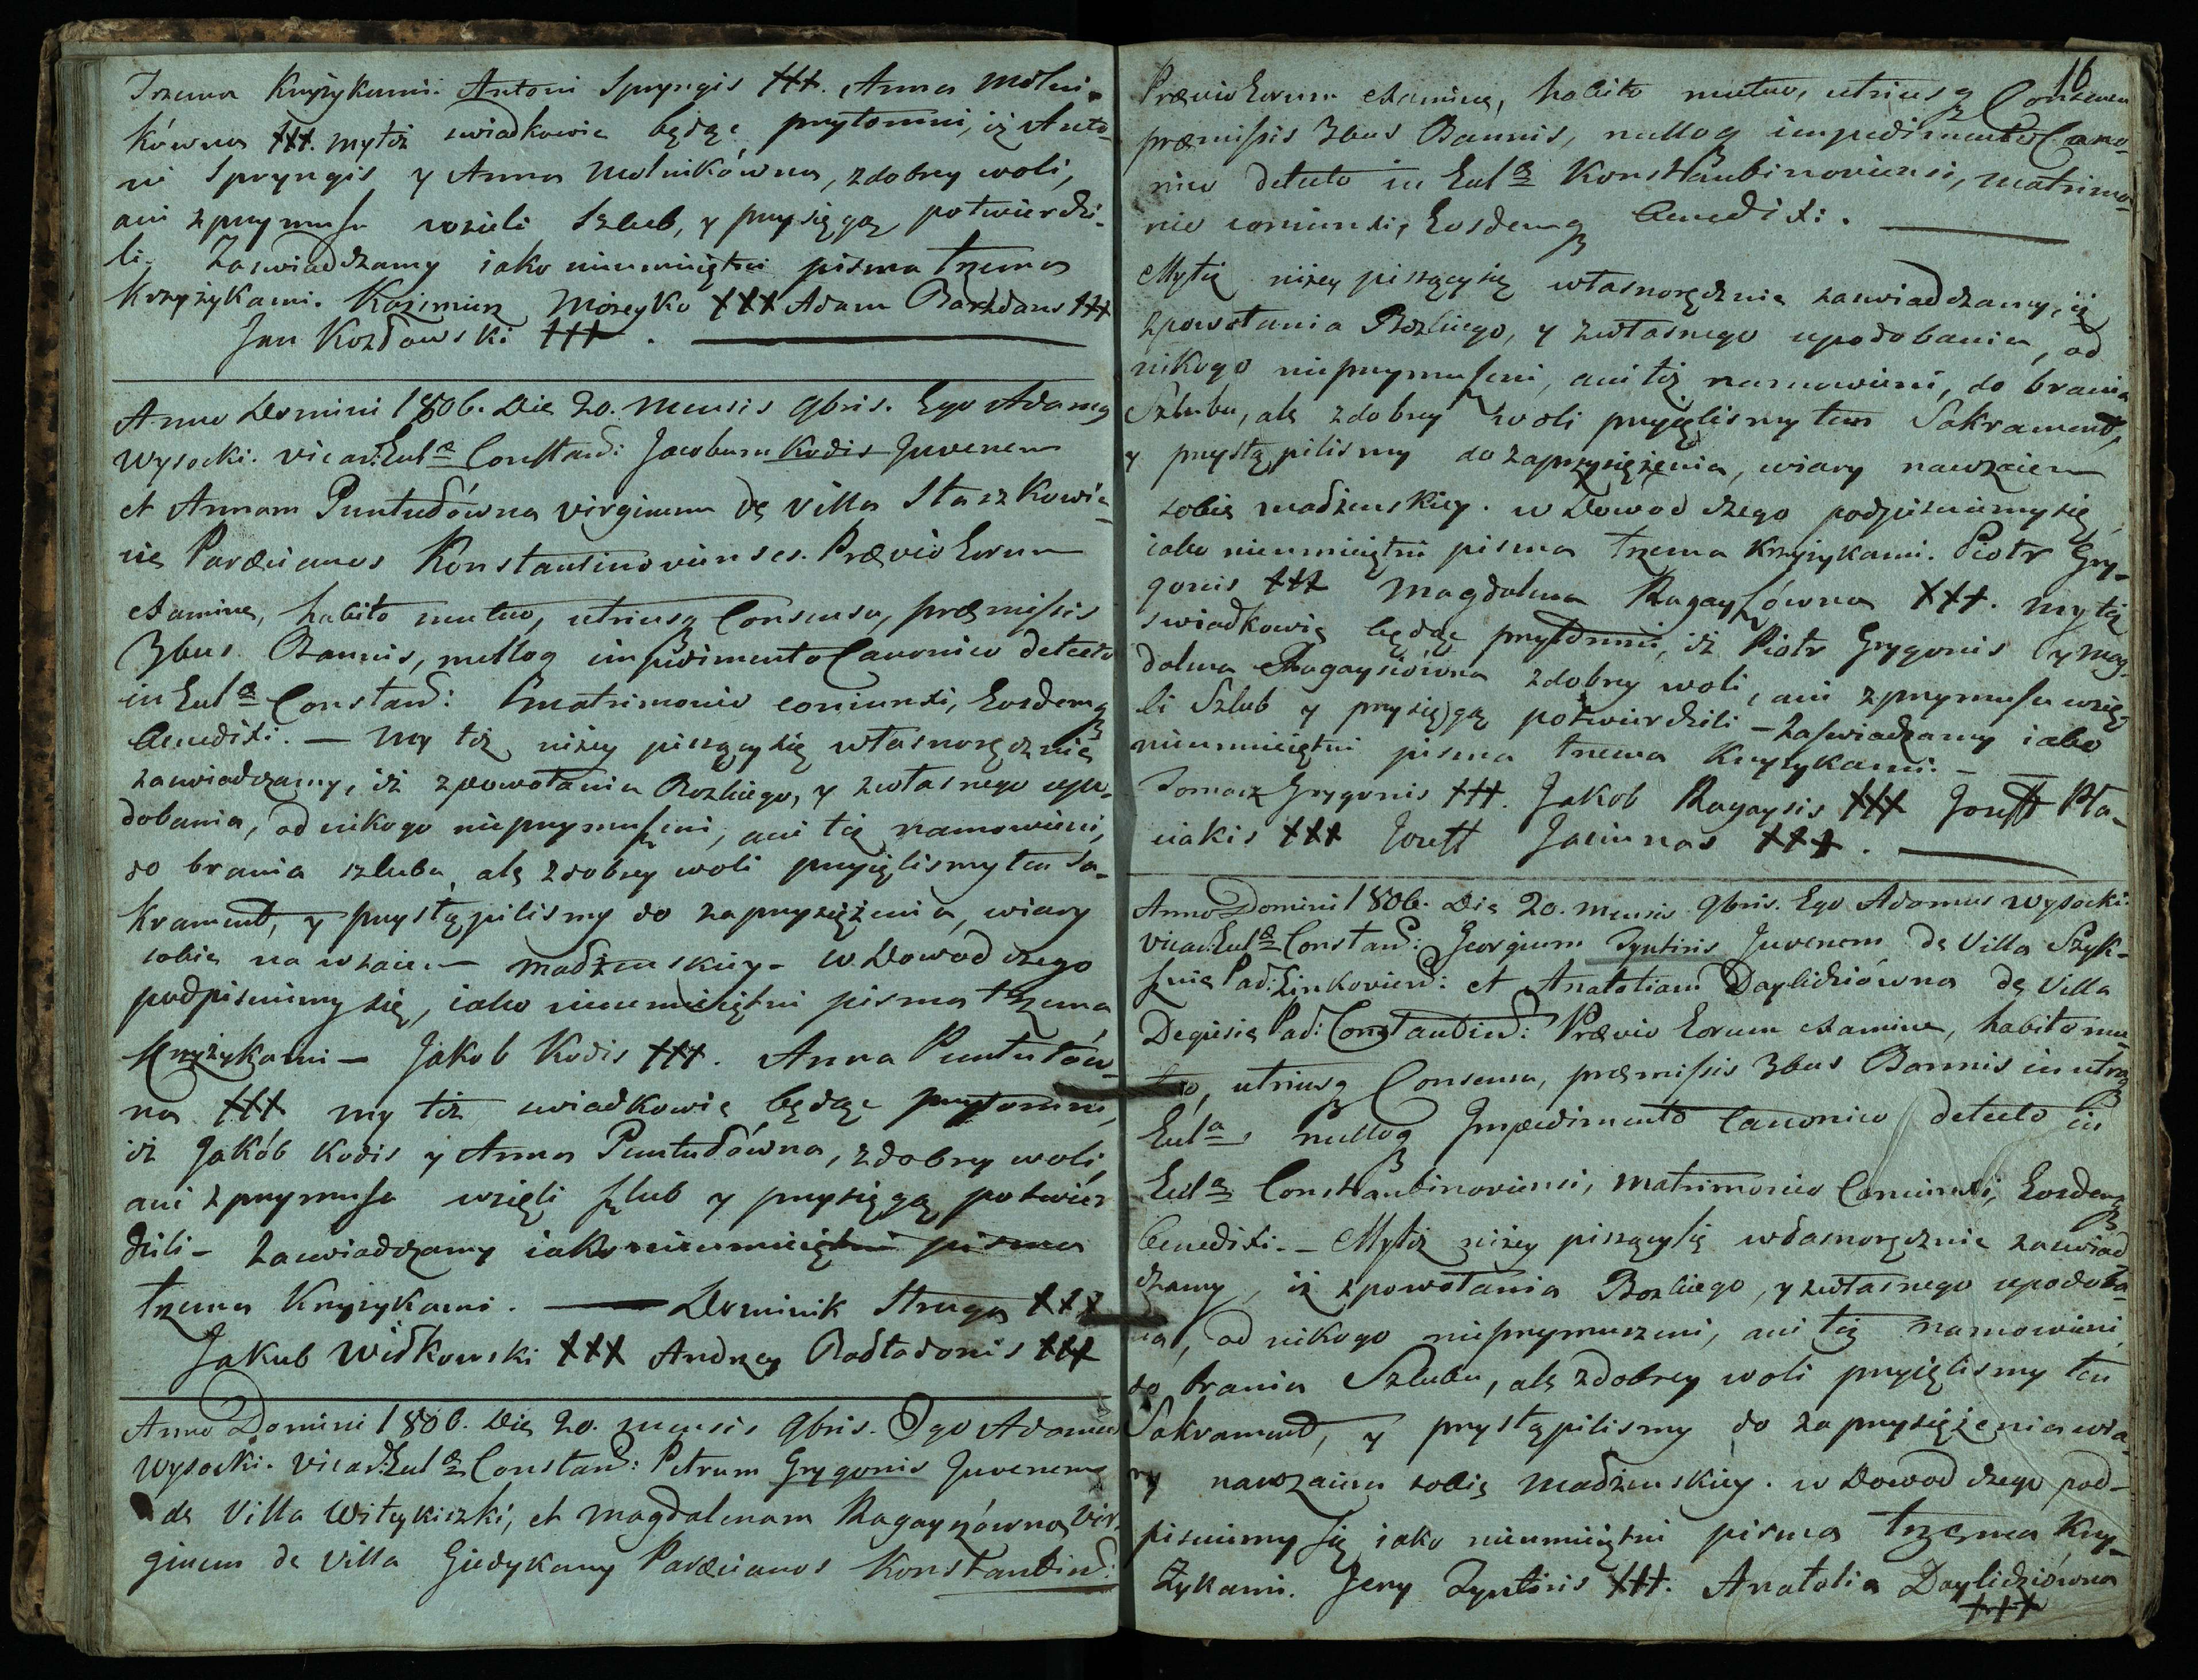 Trzema Krzyżykami. Antoni Spryngis +++. Anna Molni-
kówna +++. my też swiadkowie będąc przytomni, iż Anto-
ni Spryngis y Anna Molnikówna, z dobrey woli,
ani z przymusu wzieli Szlub, y przysięgą potwierdzi-
li. Zaswiadczamy iako nieumieiętni pisma trzema
Krzyżykami. Kazimierz Mozeyko +++ Adam Barzdans +++
Jan Kozłowski +++.
Anno Domini 1806. Die 20. Mensis 9bris. Ego Adamq
Wysocki. vicar: Eccl: Constant: Jacobum Kodis Juvenem
et Annam Puntułówna virginem de Villa Staszkowi-
nie Paræcianos Konstantinovienses. Prævio Eorum
examine, habito mutuo, utriusq Consensu, præmissis
3bus Bannis, nulloq impedimento Canonico detecto
in Eccla Constant: matrimonio coniunxi, Eosdemq
Benedixi. — My też niżey piszący się własnoręcznie
zaswiadczamy, iż z powołania Bozkiego, y z własnego upo-
dobania, od nikogo nieprzymuszeni, ani też namowieni,
do brania szlubu, ale z dobrey woli przyięlismy ten Sa-
krament, y przystąpilismy do zaprzysiężenia, wiary
sobie nawzaiem madżenskiey - w Dowod czego
podpisuiemy się, iako nieumieiętni pisma trzema
Krzyżykami — Jakob Kodis +++. Anna Puntułów-
na +++ my też swiadkowie będąc przytomni,
iż Jakób Kodis y Anna Puntułówna, z dobrey woli,
ani z przymusu wzięli szlub y przysięgą potwier
dzili - Zaswiadczamy iako nieumieiętni pisma
trzema Krzyżykami. — Dominik Struga +++
Jakub Widkowski +++ Andrzey Badładonis +++
Anno Domini 1806. Die 20. mensis 9bris. Ego Adamus
Wysocki. Vicar: Eccla Constant: Petrum Grygonis Juvenem
de Villa Witeykiszki, et Magdalenam Ragayzówna, vir-
ginem de Villa Giedykany Paræcianos Konstantin:
16
Prævio Eorum examine, habito mutuo, utriusq Consensu
præmissis 3bus Bannis, nulloq impedimento Cano-
nico detecto in Eccla Konstantinoviensi, matrimo-
nio coniunxi, Eosdemq Benedixi.
My też niżey piszący się własnoręcznie zaswiadczamy, iż
z powołania Bozkiego, y z własnego upodobania, od
nikogo nieprzymuszeni, ani też namowieni, do brania
Szlubu, ale z dobrey woli przyięlismy ten Sakrament,
y przystąpilismy do zaprzysiężenia, wiary nawzaiem
sobie madżenskiey. w Dowod czego podpisuiemy się
iako nieumieiętni pisma trzema krzyżykami. Piotr Gry-
gonis +++ Magdalena Ragayzówna +++. my też
swiadkowie będąc przytomni, iż Piotr Grygonis y Mag-
dalena Ragaysiówna z dobrey woli, ani z przymusu wzię-
li Szlub y przysięgą potwierdzili - zaswiadczamy iako
nieumieiętni pisma trzema krzyżykami. -
Tomasz Grygonis +++. Jakob Ragaysis +++ Joseff Pła-
niakis +++ Joseff Janiunas +++.
Anno Domini 1806. Die 20. Mensis 9bris. Ego Adamus Wysocki.
vicar: Eccla Constant: Georgium Zyntiris Juvenem de Villa Szyk-
sznie Par: Linkovien: et Anatoliam Daylidziówna de Villa
Degiesie Par: Constantin: Prævio Eorum examine, habito mu-
tuo, utriusq Consensu, præmissis 3bus Bannis in utraq
Eccla, nulloq Impedimento Canonico detecto in
Eccla Constantinoviensi, matrimonio Coniunxi, Eosdemq
Benedixi. — My też niżey piszący się własnoręcznie zaswiad
czamy, iż z powołania Bozkiego, y z własnego upodoba-
nia, od nikogo nieprzymuszeni, ani też namowieni,
do brania Szlubu, ale z dobrey woli przyięlismy ten
Sakrament, y przystąpilismy do zaprzysiężenia wia-
ry nawzaiem sobie madżenskiey. w Dowod czego pod-
pisuiemy się iako nieumieiętni pisma trzema Krzy-
żykami. Jerzy Zyntiris +++. Anatolia Daylidziówna
+++